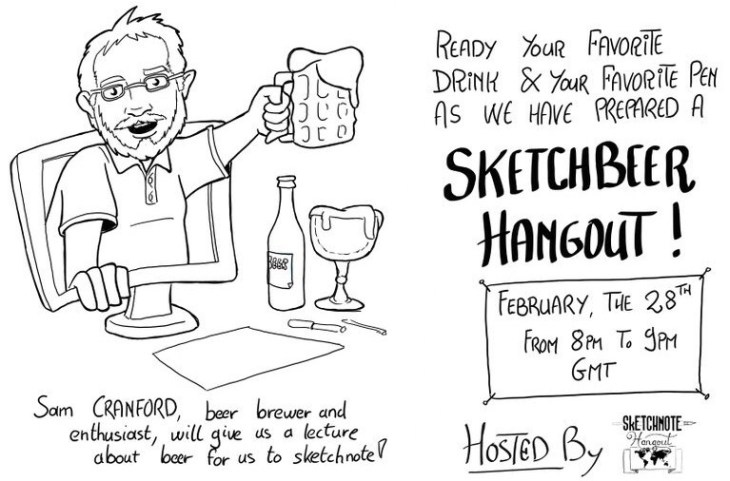 READY YOUR FAVORITE
DRINK & YOUR FAVORITE PEN
AS WE HAVE PREPARED A
SKETCHBEER
HANGOUT !
FEBRUARY, THE 28TH
FROM 8PM TO 9PM
GMT
HOSTED BY
SKETCHNOTE
Hangout
BEER
Sam CRANFORD, beer brewer and
enthusiast, will give us a lecture
about beer for us to sketchnote!